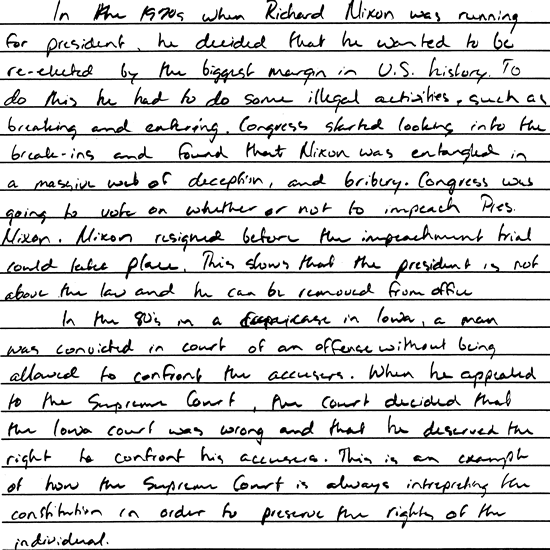 In the 1970s when Richard Nixon was running
for president, he decided that he wanted to be
re-elected by the biggest margin in U.S. history. To
do this he had to do some illegal activities, such as
breaking and entering. Congress started looking into the
break-ins and found that Nixon was entangled in
a massive web of deception, and bribery. Congress was
going to vote on whether or not to impeach Pres.
Nixon. Nixon resigned before the impeachment trial
could take place. This shows that the president is not
above the law and he can be removed from office
In the 80's in a case in Iowa, a man
was convicted in court of an offense without being
allowed to confront the accusers. When he appealed
to the Supreme Court, the court decided that
the Iowa court was wrong and that he deserved the
right to confront his accusers. This is an example
of how the Supreme Court is always intrepreting the
constitution in order to preserve the rights of the
individual.